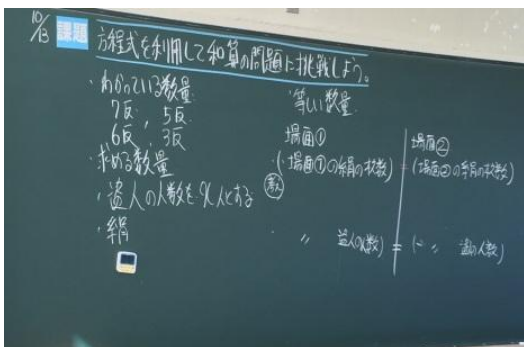 10/13 課題 方程式を利用して和算の問題に挑戦しよう。
・わかっている数量
7反、5反
6反、3反
・求める数量
・盗人の人数をx人とする
・絹
・等しい数量
場面① 場面②
(場面①の絹の枚数) = (場面②の絹の枚数)
教
・ 〃 盗人の人数) = (〃 盗人の人数)